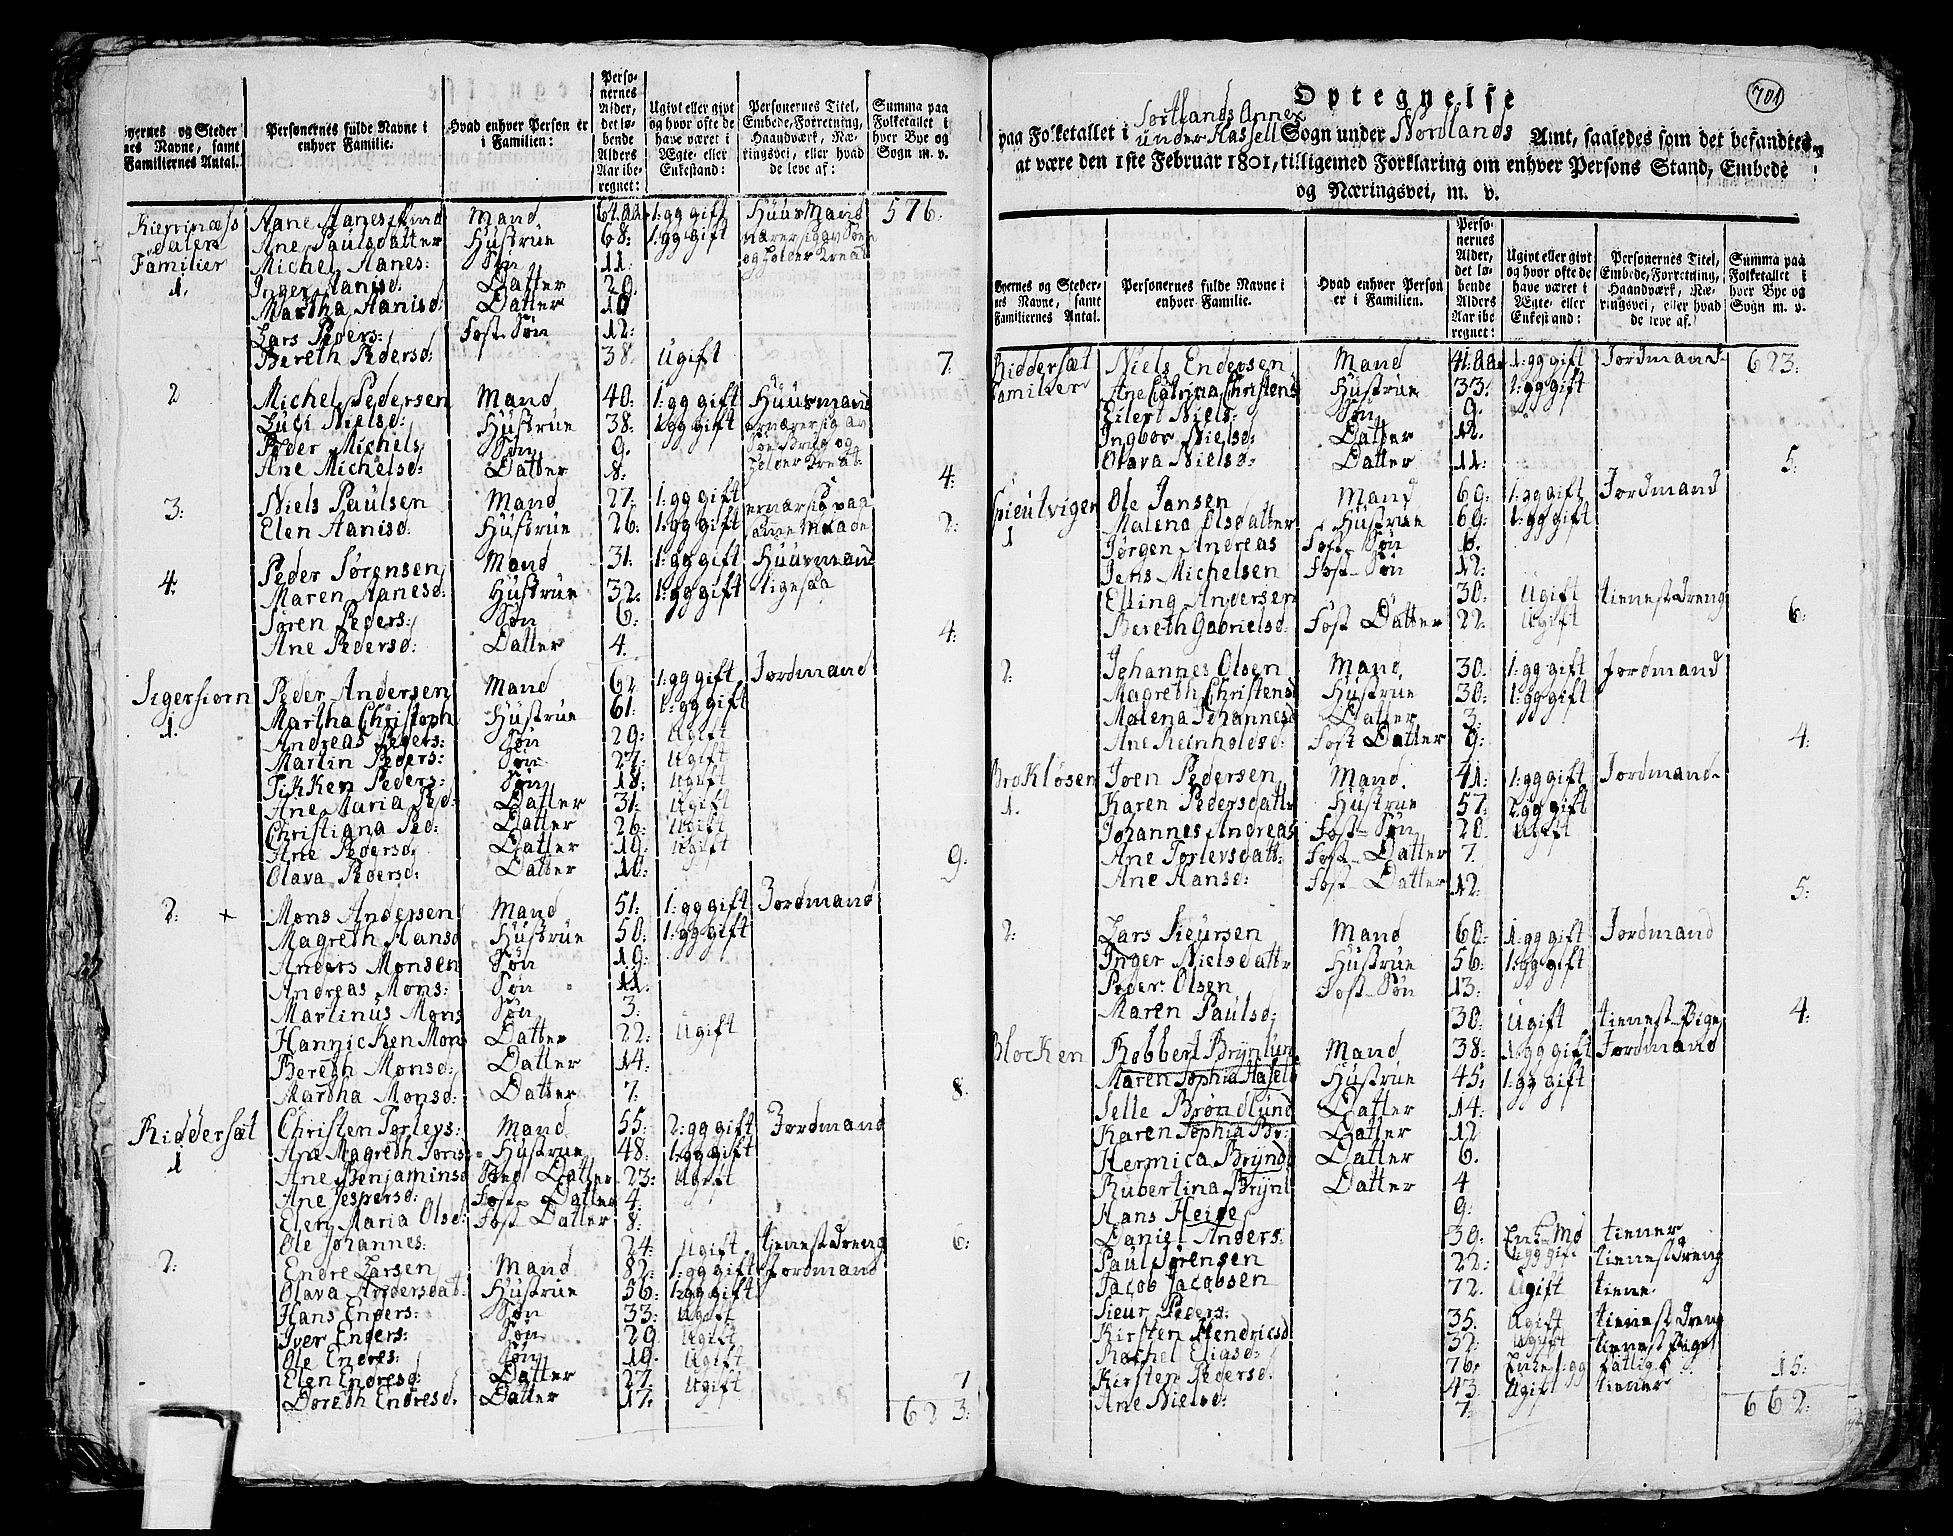 Byernes og Steder
nes Navne, samt
Familiernes Antal.
Personernes fulde Navne i
enhver Familie.
Hvad enhver Person er
i Familien:
Perso-
nernes
Alder,
det lø-
bende
Alders
Aar ibe-
regnet:
Ugivt eller givt
og hvor ofte de
have været i
Ægte- eller
Enkestand:
Personernes Titel,
Embede, Forretning,
Haandværk, Næ-
ringsvei, eller hvad
de leve af:
Summa paa
Folketallet i
hver Bye og
Sogn m. v.
Mand 1:gg gift Huusmand 576.
Ane Paulsdatter Hustrue 68: 1:gg gift
Familier Michel Hanes: Søn 11:
1. Datter 20.
Martha Hanisd: Datter
Lars Peders: Fost-Søn 12:
Bereth Pedersd: 38. Ugift 7.
2 Michel Pedersen Mand 40: 1:gg gift Huusmand
Luci Nielsd: Hustrue 38: 1:gg gift
Peder Michels Søn 9.
Ane Michelsd: Datter 8: 4:
3: Niels Paulsen Mand 27: 1:gg gift
Elen Hanisd: Hustrue 26: 1:gg gift 2:
4: Peder Sørensen Mand 31: 1:gg gift Huusmand
Maren Hanesd: Hustrue 32: 1:gg gift ligesaa
Søren Peders: Søn 6:
Ane Pedersd: Datter 4. 4:
Sigersiorn Peder Andersen Mand 62 1:gg gift Jordmand
1. Martha Christoph Hustrue 61: 1:gg gift
Andreas Peders: Søn 29: Ugift
Martin Peders: Søn 27: Ugift
Tikken Peders: Søn 18: Ugift
Ane Maria Ped: Datter 31: Ugift
Christiana Ped: Datter 26: Ugift
Ane Pedersd: Datter 19: Ugift
Olava Pedersd: Datter 9.
2: + Mons Andersen Mand 51: 1:gg gift Jordmand
Magreth Hansd Hustrue 50: 1:gg gift
Anders Monsen Søn 19:
Andreas Mons: Søn 11.
Martinus Mons Søn 3.
Hannicken Mons Datter 22: Ugift
Bereth Monsd: Datter 14:
Martha Monsd: Datter 7. 8.
Riddersæt Christen Torleys: Mand 55: 2:gg gift Jordmand
1 Ane Magreth Joris: Hustrue 48: 1:gg gift
Ane Benjaminsd Sted Datter 23: Ugift
Ane Jespersd: Fost- Datter 4.
Elen Maria Olsd: Fost Datter 8:
Ole Johannes: 24: Ugift tienestdreng 6:
2: Endre Larsen Mand 82: 1:gg gift Jordmand
Olava Andersdat: Hustrue 56: 1:gg gift
Hans Enders: Søn 33: Ugift
Iver Enders: Søn 29 Ugift
Ole Endres: Søn 19. Ugift
Elen Endresd: Datter 27: Ugift 7
Doreth Endresd. Datter 17:
623:
701
Optegnelse
paa Folketallet i Sortlands Annex under Hassell Sogn under Nordlands Amt, saaledes som det befandtes
at være den 1ste Februar 1801, tilligemed Forklaring om enhver Persons Stand, Embede
og Næringsvei, m. v.
Byernes og Steder-
nes Navne, samt
Familiernes Antal.
Personernes fulde Navne i
enhver Familie.
Hvad enhver Person
er i Familien.
Perso-
nernes
Alder,
det lø-
bende
Alders
Aar ibe-
regnet:
Ugivt eller givt
og hvor ofte de
have været i
Ægte- eller
Enkestand:
Personernes Titel,
Embede, Forretning,
Haandværk, Næ-
ringsvei, eller hvad
de leve af.
Summa paa
Folketallet i
hver Bye og
Sogn m. v.
Riddersæt Niels Endersen Mand 41.aar 1:gg gift Jordmand 623:
Familier Ane Catrina Christens Hustrue 33: 1:gg gift
Eilert Niels: Søn 9:
Ingbor Nielsd: Datter 12:
Olava Nielsd: Datter 11: 5:
Ole Jansen Mand 69: 1:gg gift Jordmand
Malena Olsdatter Hustrue 69: 1:gg gift
1 Jørgen Andreas Fost- Søn 6:
Jens Michelsen Fost- Søn 12:
Elling Andersen 30: Ugift tienestdreng
Bereth Gabrielsd: Fost Datter 22: Ugift 6:
2: Johannes Olsen Mand 30. 1:gg gift Jordmand
Magreth Christensd Hustrue 30: 1:gg gift
Malena Johannesd Datter 3:
Ane Reinholdsd: Fost Datter 9: 4:
Brokløsen Joen Pedersen Mand. 41: 1:gg gift Jordmand
1. Karen Pedersdatt Hustrue 57: 2:gg gift
Johannes Andreas Fost- Søn 20. Ugift
Ane Torlevsdatt: Fost- Datter 7
Ane Hansd: Fost- Datter 12: 5:
2: Lars Sieursen Mand 60: 1:gg gift Jordmand
Inger Nielsdattr Hustrue 56: 1:gg gift
Peder Olsen Fost-Søn 13:
Maren Paulsd: 30: Ugift tienest-Pige 4:
Blocken Robbert Brynlun Mand 38: 1:gg gift Jordmand
Maren Sophia Hasels Hustrue 45: 1:gg gift
Selle Brøndlund Datter 14:
Karen Sophia Br: Datter 12
Hermica Brynd Datter 6.
Rubertina Brynl Datter 4
Hans Heide 9:
Daniel Anders: 30: tiener
Paul Sørensen 22: Ugift tienestdreng
Jacob Jacobsen 72 Ugift tiene
Sieur Peders: 35. Ugift tienestdreng
Kirsten Hendricsd 32: Ugift tienestPige
Rachel Eliasd: 76: Fattig
Kirsten Pedersd. 43 Ugift tiener 15:
Ane Nielsd: 7.
662: